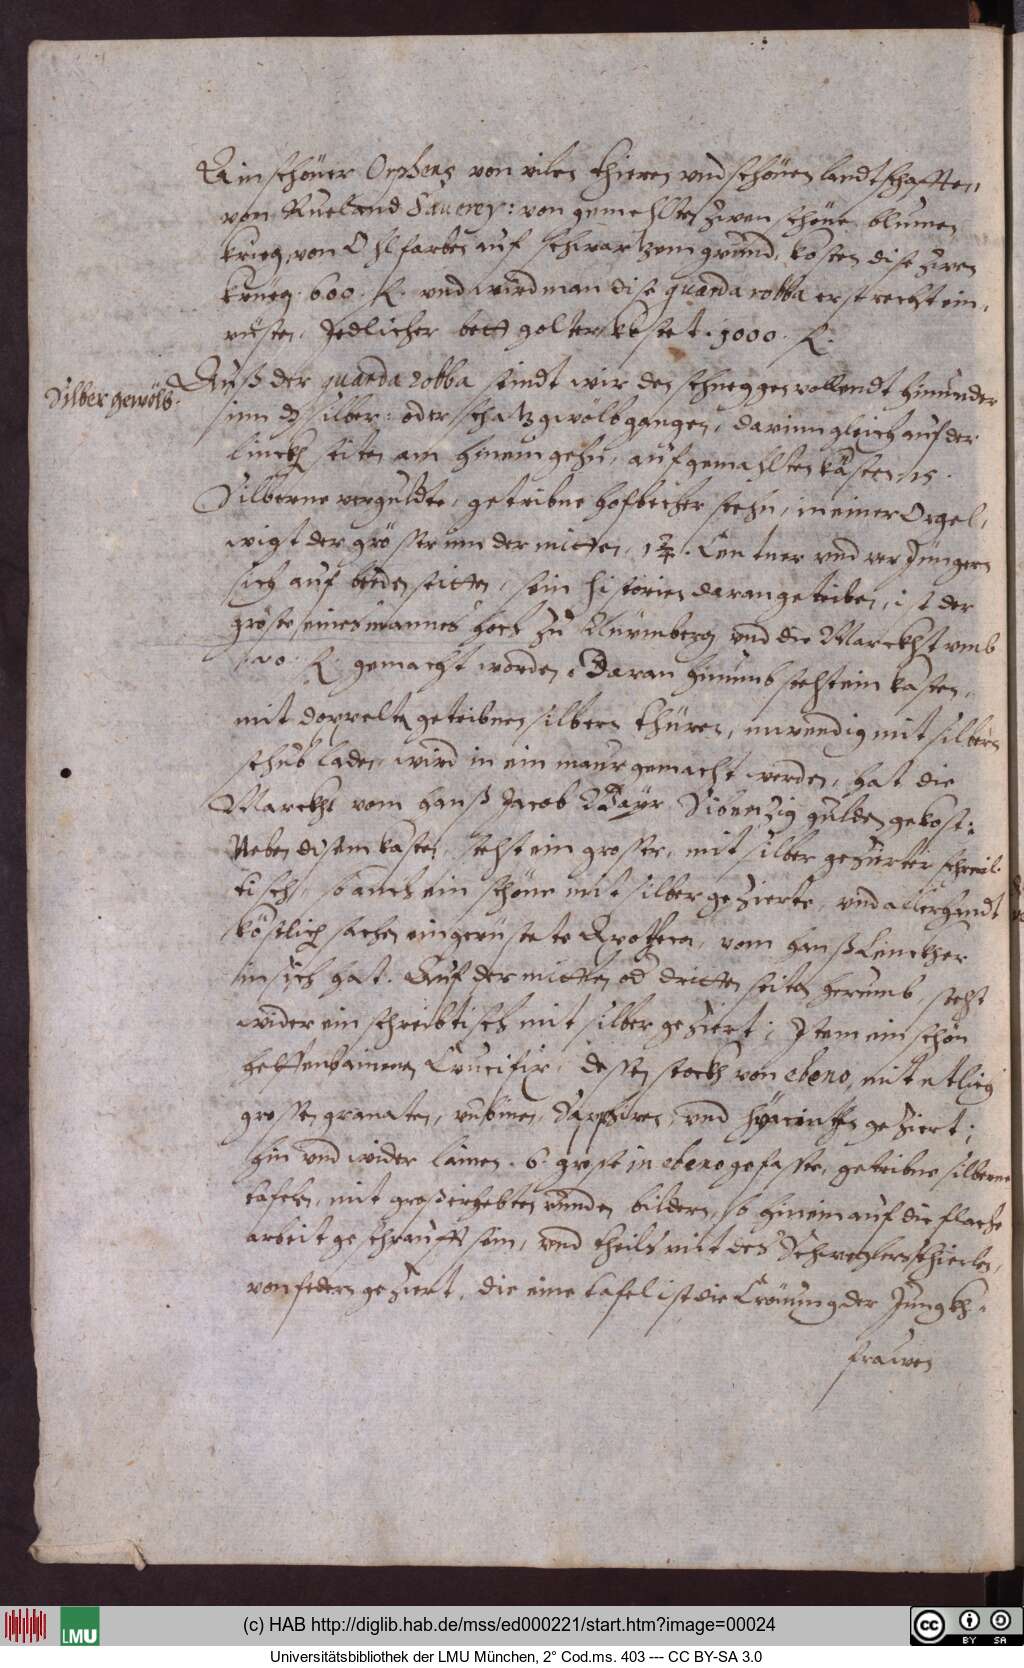 Ein schöner Orpheus von vilen thieren vnd schönen landtschafften
von Rueland Sauerey: von gemehlten zwen schöne blumen
krieg, von Öhlfarben auf schwartzem grund, kosten dise zwen
krueg. 600. fl. vnd wird man dise guarda robba erst recht ein,
rüsten, Jedlicher bett golter kostet. 1000. fl.
Silber gewölb.
Auß der guarda robba seindt wir den schneggen vollendt hinunder
inn dz silber: oder schatz gwölb gangen, darinn gleich auf der
linckh seiten am hineingehn, auf gemahlten kästen, 15.
Silberne verguldte, getribne hofbecher stehn, in einer Orgel,
wigt der grösser inn der mitten, 1 3/4. Centner vnd ver Jüngern
sich auf beeden seitten, sein historien daran getriben, ist der
gröste eines mannes hoch zu Nürmberg vnd die Marckht vmb
fl. gemacht worden. Daran hinumb steht ein kasten,
mit doppelten getribnen silbern thüren, inwendig mit silbern
schubladen, wird in ein maur gemacht werden, hat die
Marckht vom Hanß Jacob Bayr Sibenzig gulden gekost:
Neben disem kasten, steht ein grosser, mit silber gezierter schreib-
tisch, so auch ein schöne mit silber gezierte, vnd allerhandt
köstlich sachen eingerüstete Apotheca, vom Hanß Lenckher
in sich hat. Auf der mitten od dritten seiten herumb, steht
wider ein schreibtisch mit silber geziert; Item ein schön
helffenbainen Crucifix, dessen stockh von ebeno, mit etlich
grossen granaten, rubinen, Sapphiren, vnd Hyacinthen geziert;
hin vnd wider lainen. 6. grosse in ebeno gefasste, getribne silberne
tafelen, mit groß erhebten runden bildern, so hinein auf die flache
arbeit geschraufft sein, vnd theils mit des
von federn geziert. die eine tafel ist die Crönung der Jungkh-
frawen
(c) HAB http://diglib.hab.de/mss/ed000221/start.htm?image=00024
LMU
cc BY SA
Universitätsbibliothek der LMU München, 2° Cod.ms. 403 --- CC BY-SA 3.0